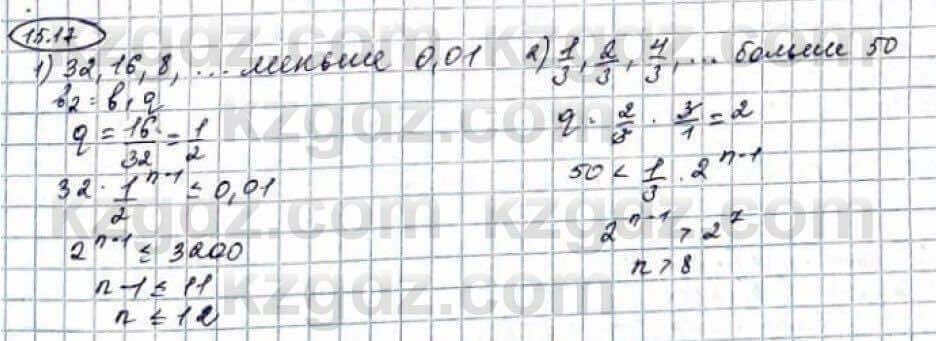 15.17
1) 32, 16, 8, ... меньше 0,01
b₂ = b₁ q
q = 16/32 = 1/2
32 · 1/2^(n-1) ≤ 0,01
2^(n-1) ≤ 3200
n-1 ≤ 11
n ≤ 12
2) 1/3, 2/3, 4/3, ... больше 50
q = 2/3 · 3/1 = 2
50 < 1/3 · 2^(n-1)
2^(n-1) > 2^7
n > 8
kzgdz.com
kzgdz.com
kzgdz.com
kzgdz.com